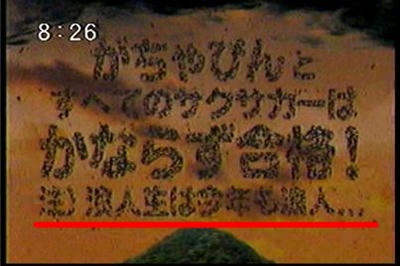 8:26
がちゃぴんと
すべてのサクサカーは
かならず合格!
注)浪人生は今年も浪人...